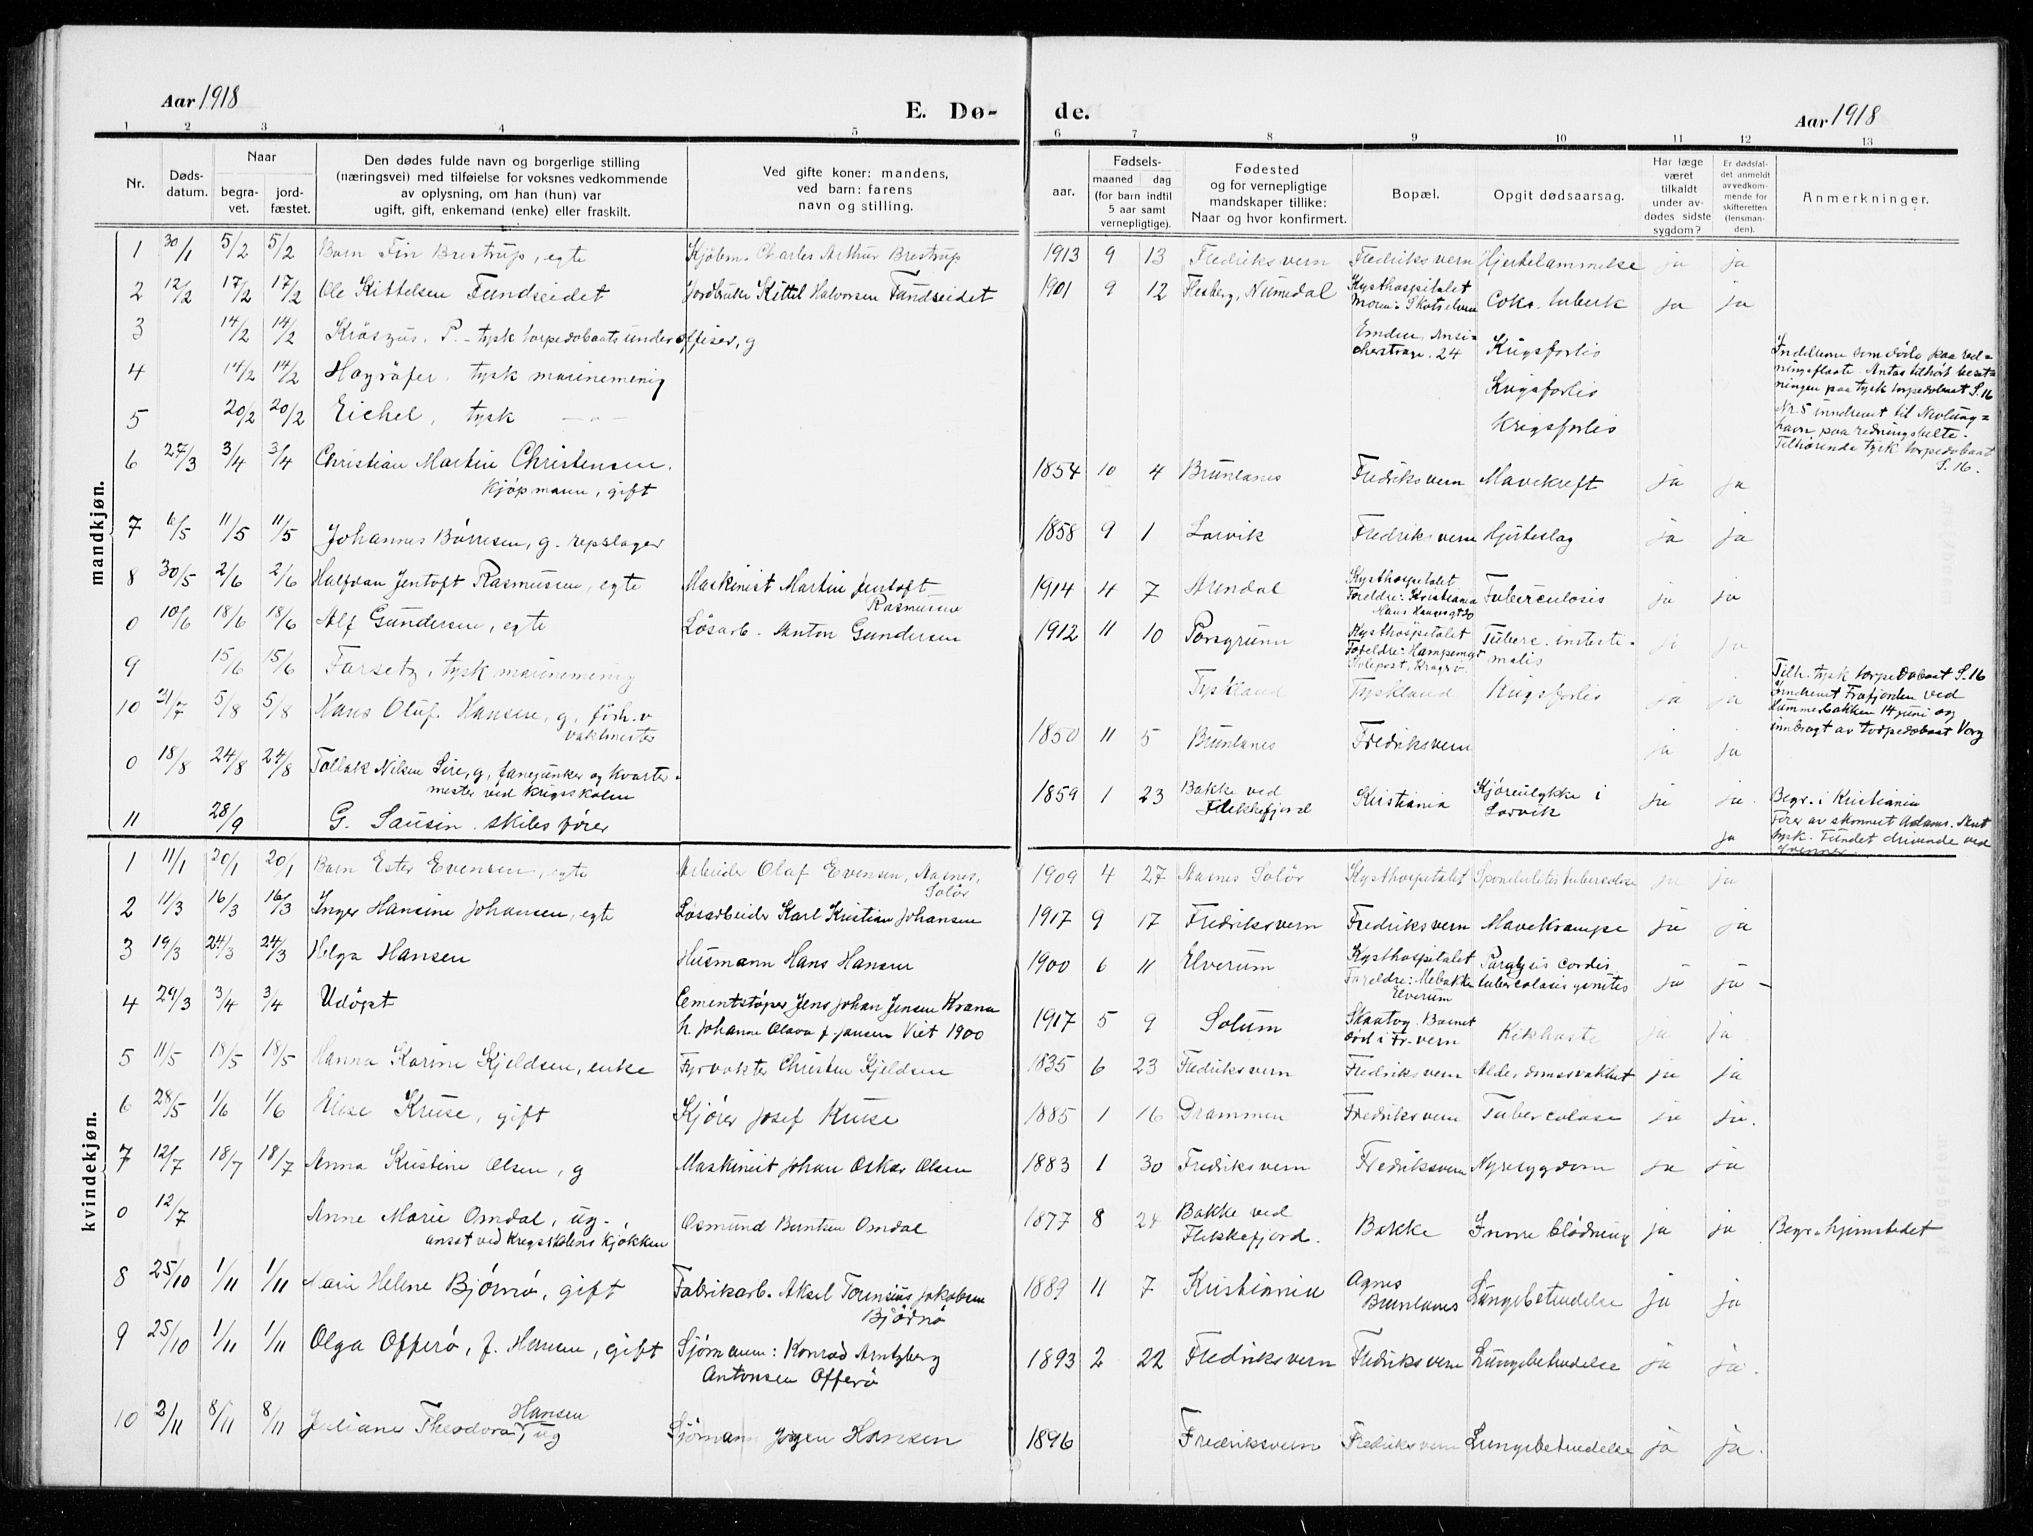 Aar 1918
E. Dø-
de.
Aar 1918
1 2 3 4 5 6 7 8 9 10 11 12 13
Nr.
Døds-
datum.
Naar
begra-
vet.
jord-
fæstet.
Den dødes fulde navn og borgerlige stilling
(næringsvei) med tilføielse for voksnes vedkommende
av oplysning, om han (hun) var
ugift, gift, enkemand (enke) eller fraskilt.
Ved gifte koner: mandens,
ved barn: farens
navn og stilling.
Fødsels-
aar.
maaned
dag
(for barn indtil
5 aar samt
vernepligtige).
Fødested
og for vernepligtige
mandskaper tillike:
Naar og hvor konfirmert.
Bopæl.
Opgit dødsaarsag.
Har læge
været
tilkaldt
under av-
dødes sidste
sygdom?
Er dødsfal-
det anmeldt
av vedkom-
mende for
skifteretten
(lensman-
den).
Anmerkninger.
mandkjøn.
1 30/1 5/2 5/2 Barn Fin Brestrup, egte Kjøbm. Charles Arthur Brestrup 1913 9 13 Fredriksvern Fredriksvern Hjertelammelse ja ja
2 12/2 17/2 17/2 Ole Kittelsen Fundseidet Jordbruker Kittel Halvorsen Fundseidet 1901 9 12 Flesberg, Numedal Kysthospitalet Coks. tuberk ja ja
3 14/2 14/2 Kröszus, P. - tysk torpedobaatsunderoffiser, g Emden, 24 Krigsforlis
4 14/2 14/2 Hogräfer, tysk marinemenig Krigsforlis
5 20/2 20/2 Eichel, tysk - " - Krigsforlis
Inddrevne som døde paa red-
ningsflaate. Antas tilhört beset-
ningen paa tysk torpedobaat S.16
Nr. 5 inndrevet til Nevlung-
havn paa redningsbelte.
Tilhørende tysk torpedobaat
S. 16.
6 27/3 3/4 3/4 Christian Martin Christensen. 1854 10 4 Brunlanes Fredriksvern Mavekreft ja ja
kjøpmann, gift
7 6/5 11/5 11/5 Johannes Børresen, g. repslager 1858 9 1 Larvik Fredriksvern Hjerteslag ja ja
8 30/5 2/6 2/6 Halfdan Jentoft Rasmussen, egte Maskinist Martin Jentoft
Rasmussen 1914 4 7 Arendal Kysthospitalet
Foreldre: Kristiania Tuberculosis ja ja
0 10/6 18/6 18/6 Alf Gundersen, egte Løsarb. Anton Gundersen 1912 11 10 Porsgrunn Kysthospitalet Tuberc. intesti-
nalis ja ja
9 15/6 15/6 Farsetz, tysk marinemenig Tyskland Tyskland Krigsforlis ja ja
Tilh. tysk torpedobaat S.16
14 juni og
innbragt av torpedobaat Varg
10 31/7 5/8 5/8 Hans Oluf Hansen, g, förh.v
vaktmester 1850 11 5 Brunlanes Fredriksvern ja ja
0 18/8 24/8 24/8 Tollak Nilsen Sire, g, fanejunker og kvarter-
mester ved Krigsskolen 1859 1 23 Bakke ved
Flekkefjord Kristiania Kjøreulykke i
Larvik ja ja. Begr. i Kristiania
11 28/9 G. Sausin. skibsfører ja
Fører av skonnert Adams.
tysk. Fundet drivende ved
Svenner.
kvindekjøn.
1 11/1 20/1 20/1 Barn Ester Evensen, egte Arbeider Olaf Evensen, Aasnes,
Solør 1909 4 27 Aasnes Solör Kysthospitalet ja ja
2 11/3 16/3 16/3 Inger Hansine Johansen, egte Løsarbeider Karl Kristian Johansen 1917 9 17 Fredriksvern Fredriksvern Mavekrampe ja ja
3 19/3 24/3 24/3 Helga Hansen Husmann Hans Hansen 1900 6 11 Elverum Kysthospitalet
Elverum Paralysis cordis ja ja -
4 29/3 3/4 3/4 Udøpt Cementstøper Jens Johan Jensen Krana
h. Johanne Olava f. Jansen Viet 1900 1917 5 9 Solum Skaatøy. Barnet
död i Fr-vern Kikhoste ja ja
5 11/5 18/5 18/5 Hanna Karine Kjeldsen, enke Fyrvokter Christen Kjeldsen 1835 6 23 Fredriksvern Fredriksvern Alderdomssvakhet ja ja
6 28/5 1/6 1/6 Elise Kruse, gift Kjörer Josef Kruse 1885 1 16 Drammen Fredriksvern Tubercolose ja ja.
7 12/7 18/7 18/7 Anna Kristine Olsen, g Maskinist Johan Oskar Olsen 1883 1 30 Fredriksvern Fredriksvern Nyresygdom ja ja
0 12/7 Anne Marie Omdal, ug.
ansat ved Krigsskolens kjøkken Osmund Omdal 1877 8 24 Bakke ved
Flekkefjord. Bakke Innre blødning ja ja Begr. hjemstedet
8 25/10 1/11 1/11 Marie Helene Bjørnø, gift Fabrikarb. Aksel Jakobsen
Bjørnø 1889 11 7 Kristiania Agnes
Brunlanes Lungebetendelse ja ja
9 25/10 1/11 1/11 Olga Offerø, f. Hansen, gift Sjømann: Konrad Arntzberg
Antonsen Offerø 1893 2 22 Fredriksvern Fredriksvern Lungebetendelse ja ja.
10 2/11 8/11 8/11 Juliane Theodora Hansen, ug Sjømann Jørgen Hansen 1896 Fredriksvern Fredriksvern Lungebetendelse ja ja.